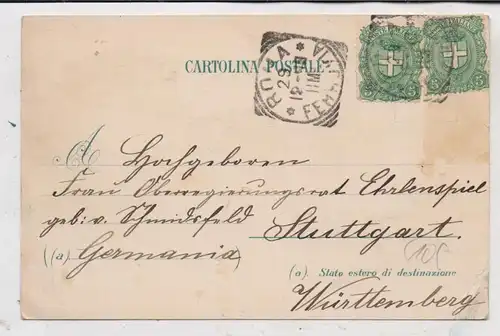 CARTOLINA POSTALE
ROMA
FERROVIA
A Hochgeboren
Frau Oberregierungsrat Ehrlenspiel
geb: v. Schmidsfeld Stuttgart.
(a) Germania)
(a) Stato estero di destinazione
Württemberg